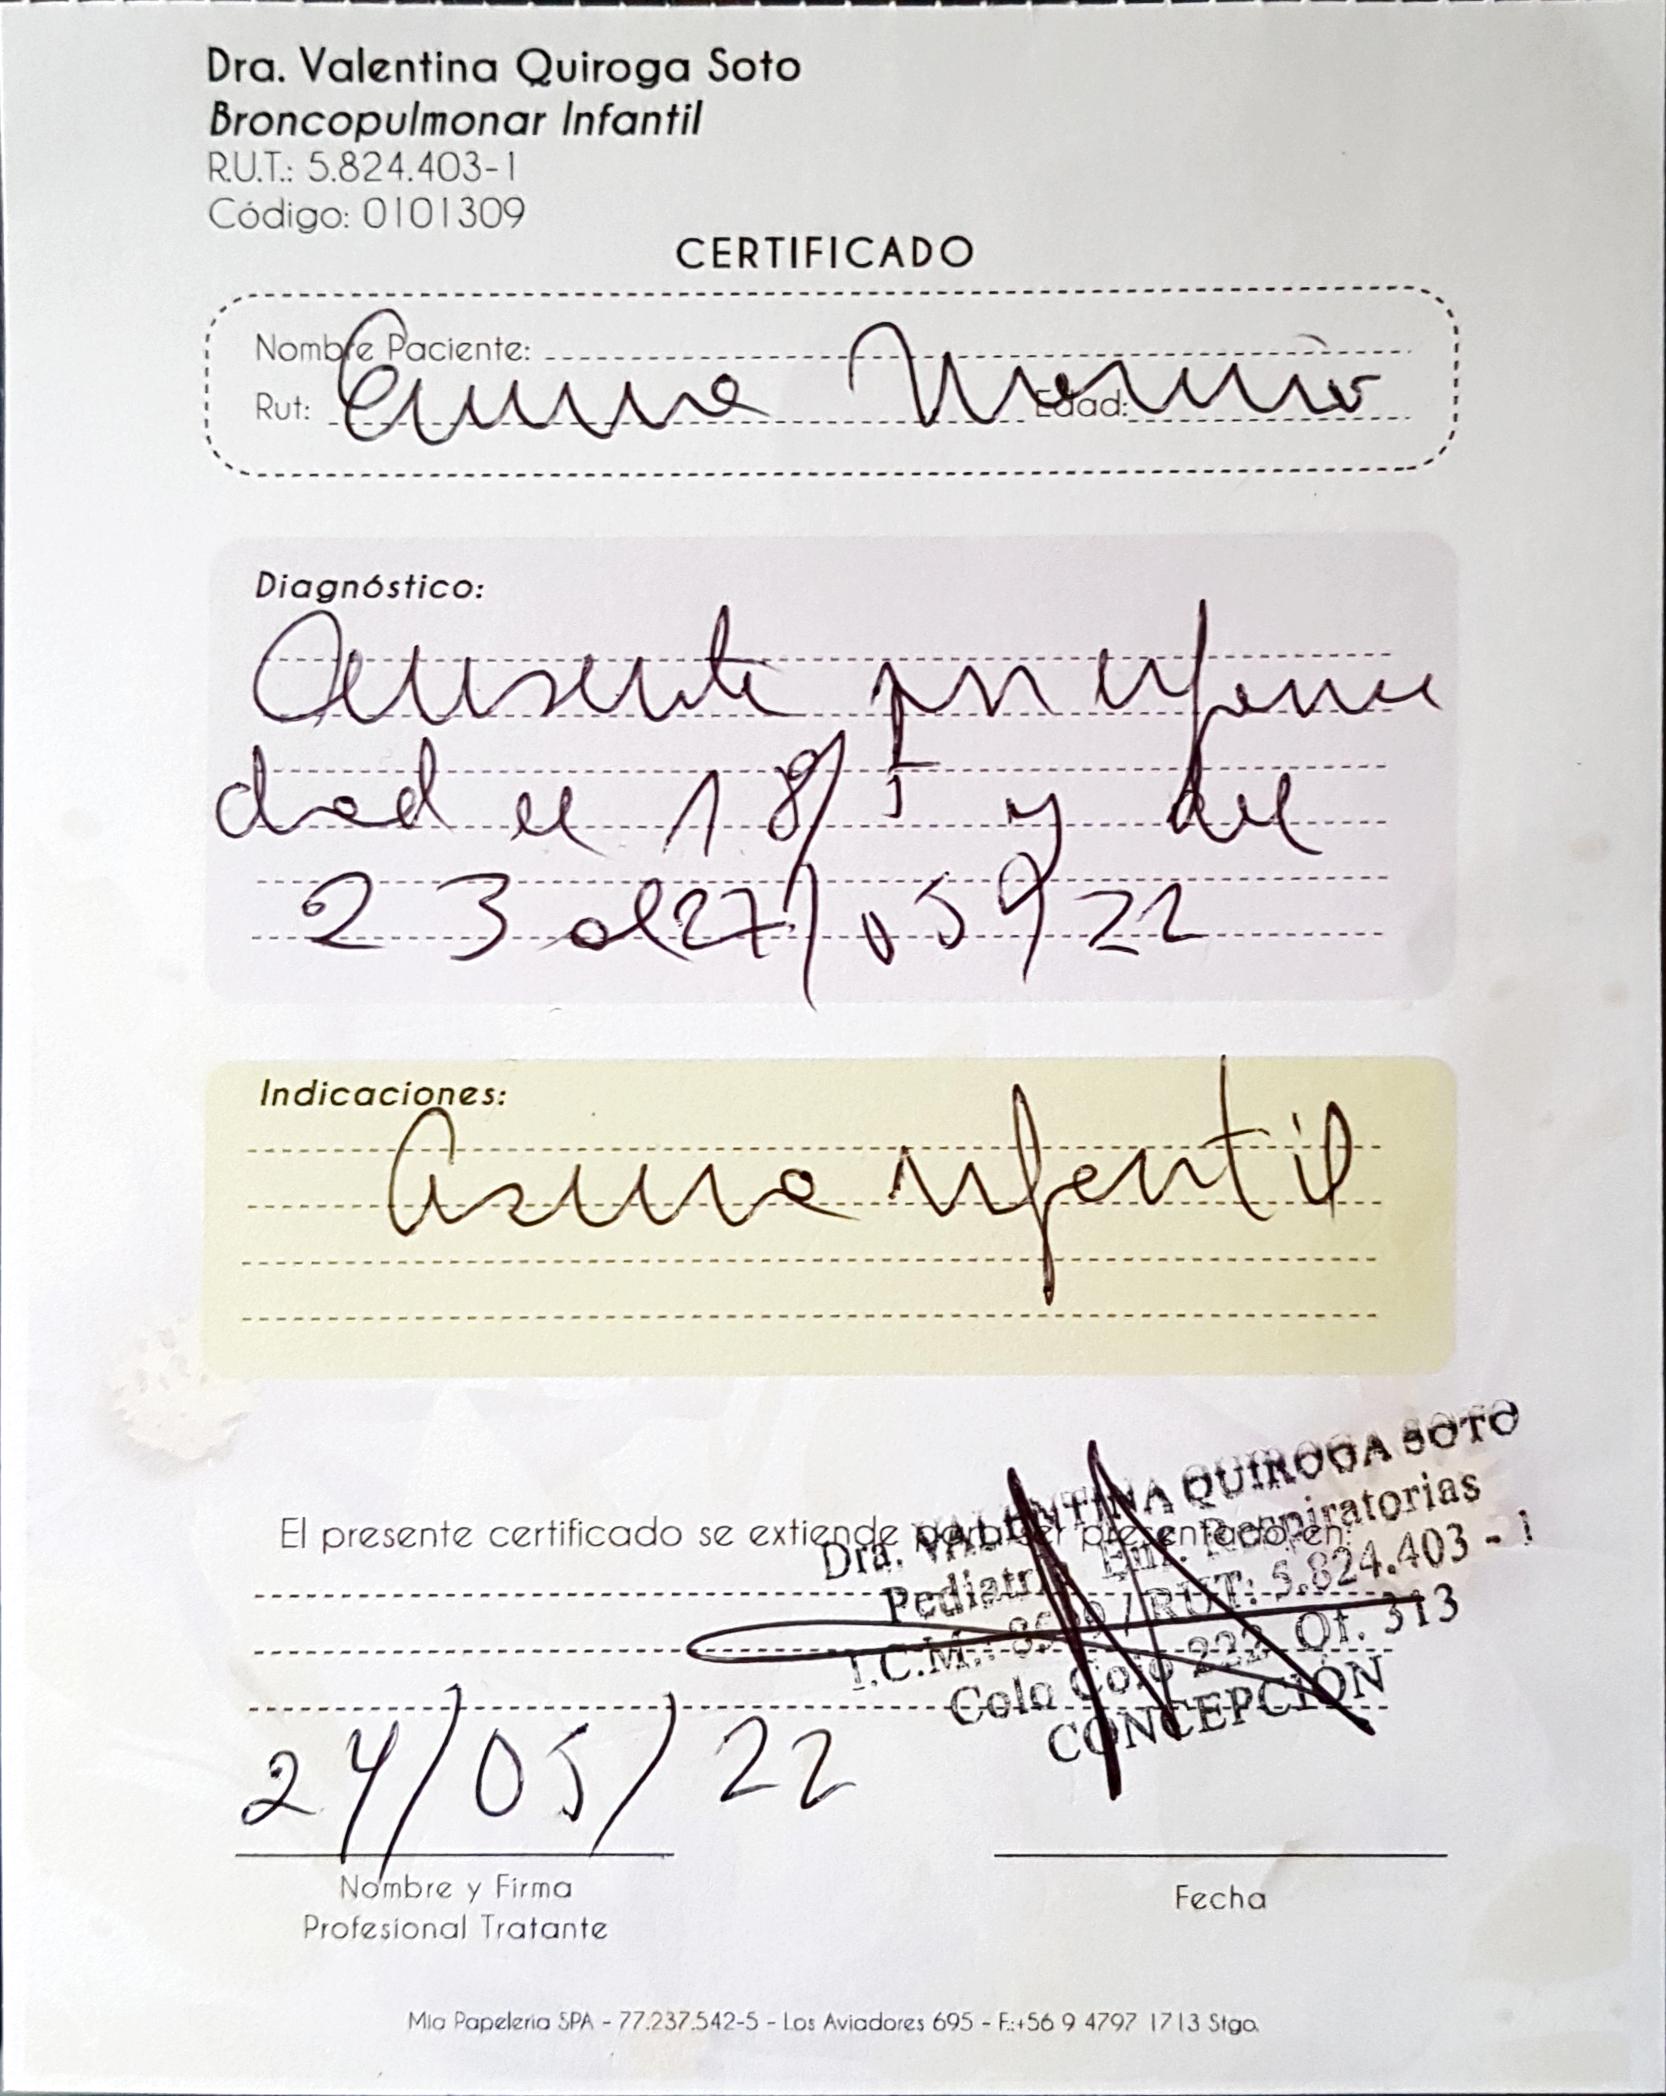 Dra. Valentina Quiroga Soto
Broncopulmonar Infantil
R.U.T.: 5.824.403-1
Código: 0101309
CERTIFICADO
Nombre Paciente:
Emma
Rut: Edad:
Diagnóstico:
Ausente por enferme
dad el 18/5 y del
23 al 27/05/22
Indicaciones:
Asma infantil
El presente certificado se extiende para ser presentado en:
Dra. VALENTINA QUIROGA SOTO
Pediatría Enf. Respiratorias
I.C.M.: / RUT: 5.824.403 - 1
Colo Colo 222 Of. 313
CONCEPCIÓN
24/05/22
Nombre y Firma
Profesional Tratante
Fecha
Mia Papelería SPA - 77.237.542-5 - Los Aviadores 695 - F.:+56 9 4797 1713 Stgo.